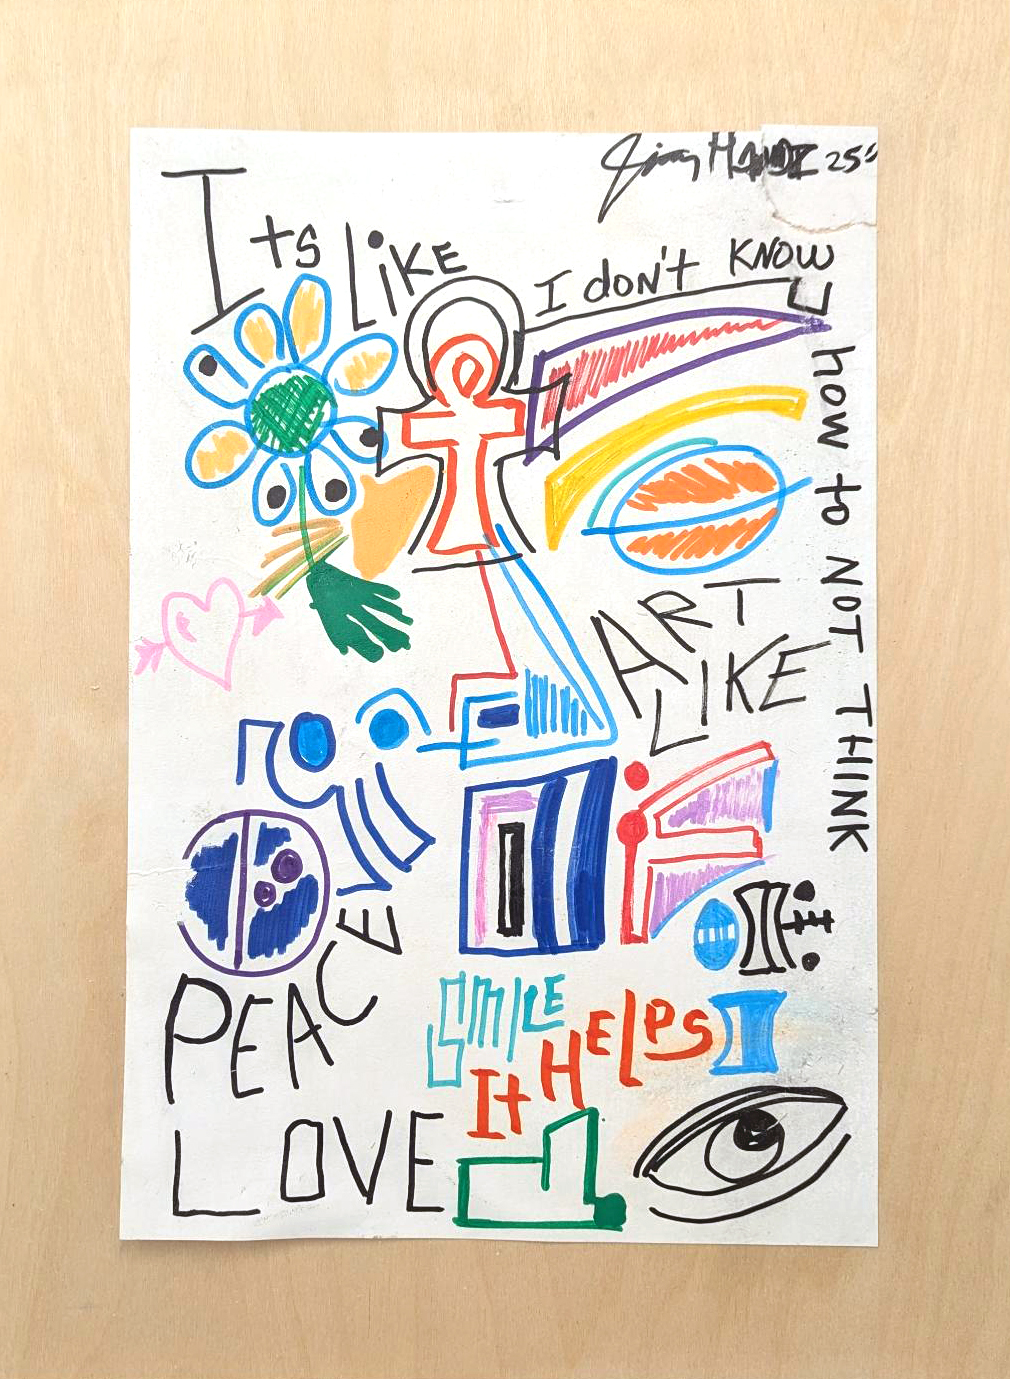 Jimmy 25"
Its LiKE
I don't KNOW
how to NOT THINK
ART
LIKE
PEACE
SMILE
It HElPS
LOVE